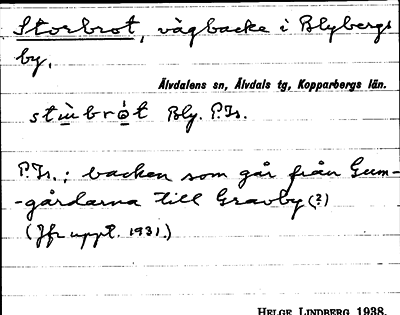 Storbrot, vägbacke i Blybergs
by.
Älvdalens sn, Älvdals tg, Kopparbergs län.
stu̇̀brȯ́t Bly. P.Js.
P.Js.: backen som går från Gum-
-gårdarna till Gravby(?)
(Jfr uppt. 1931.)
HELGE LINDBERG 1938.